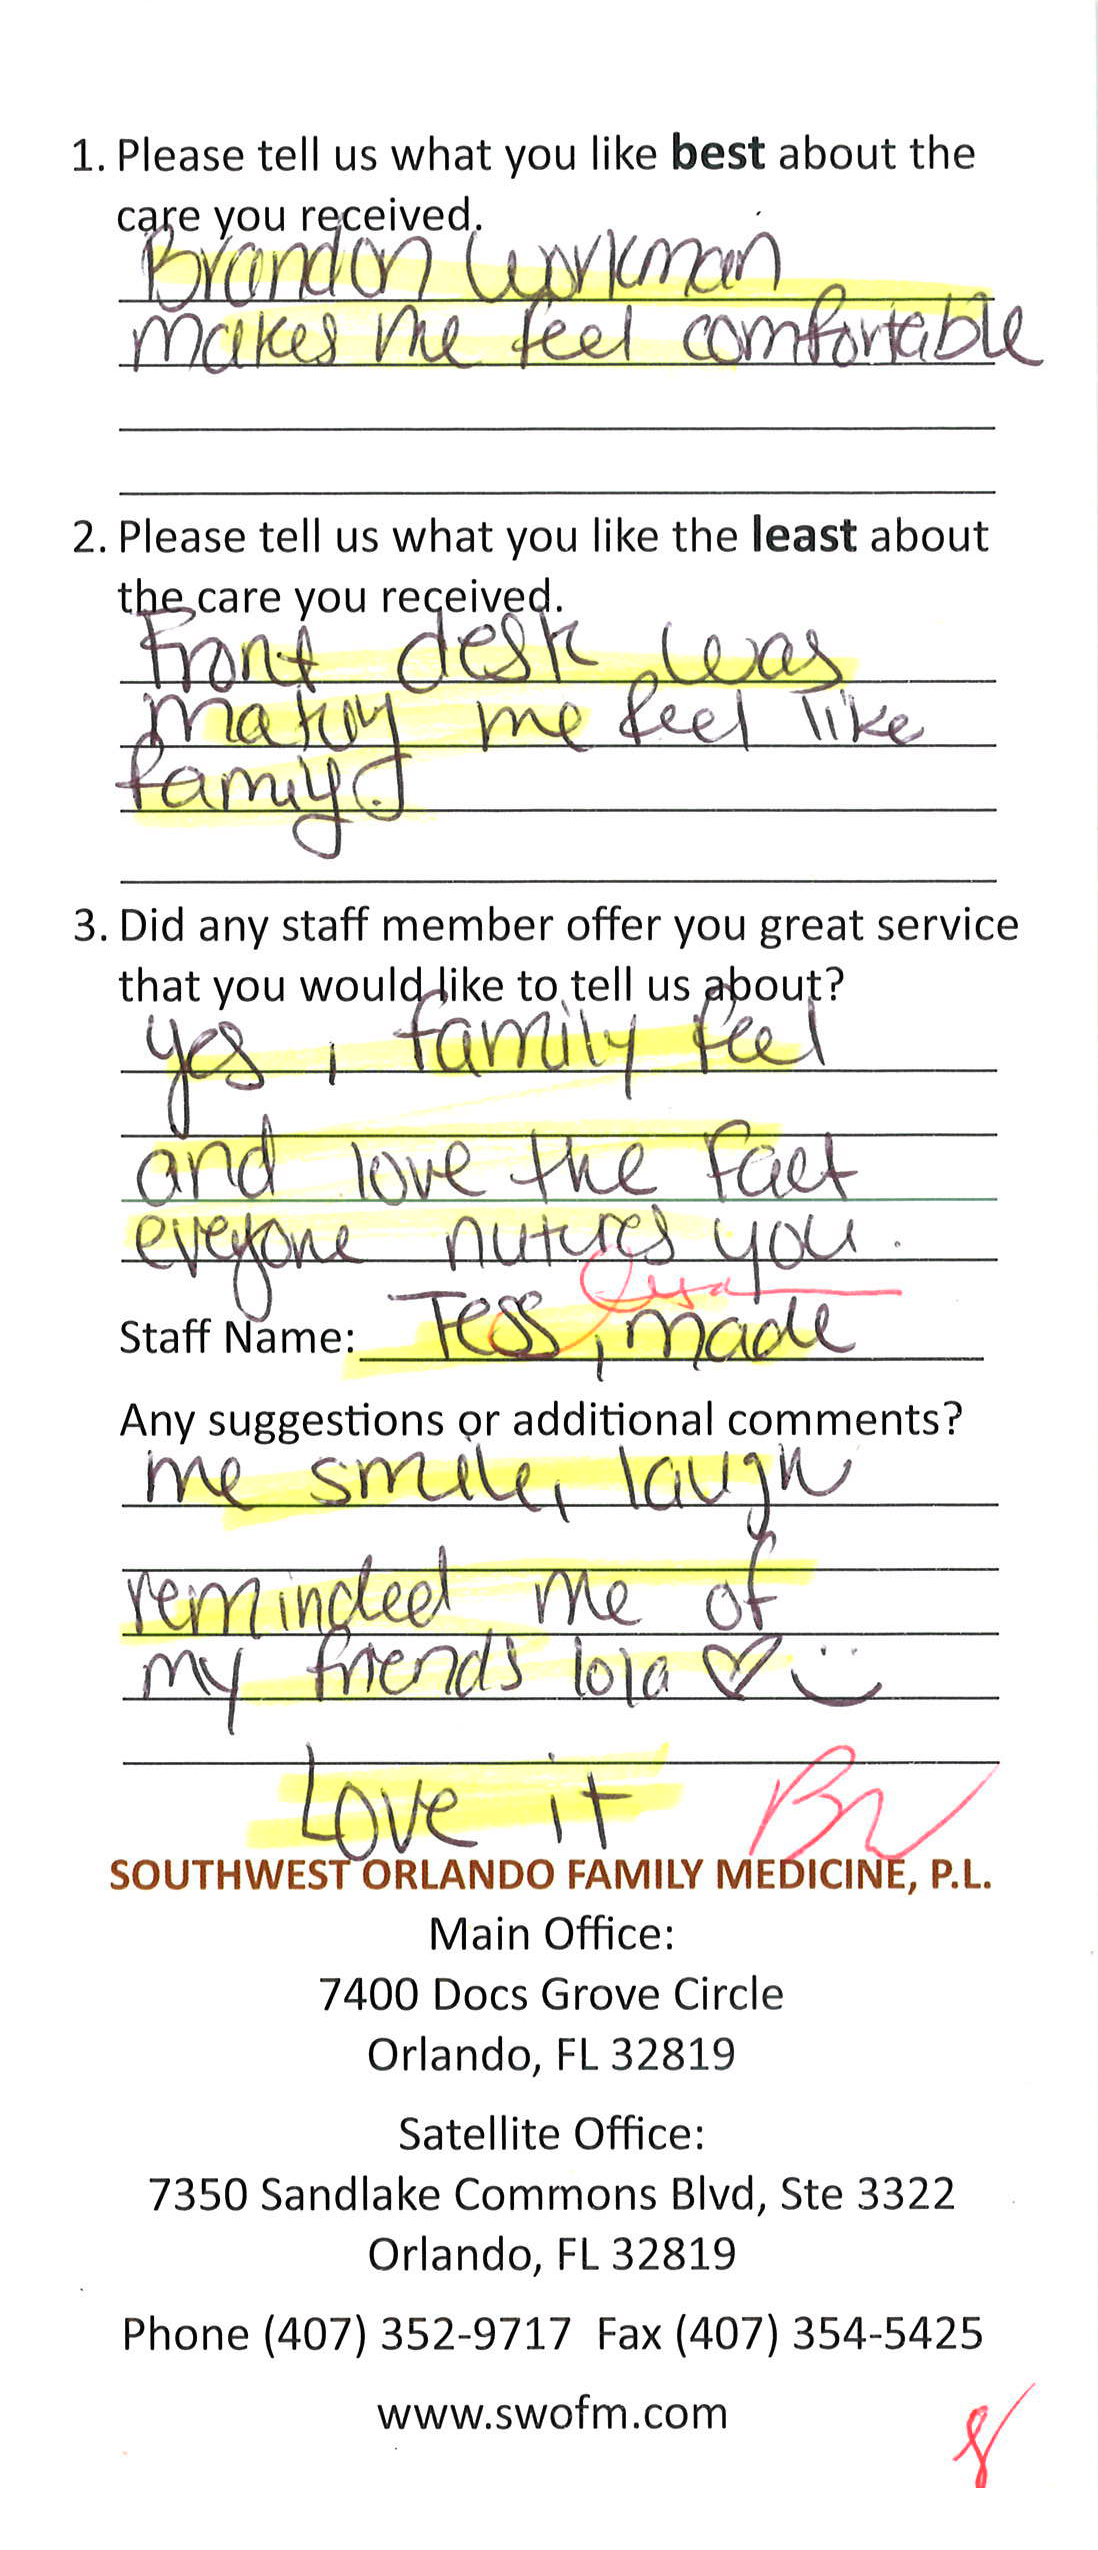 1. Please tell us what you like best about the
care you received.
Brandon Workman
makes me feel comfortable
2. Please tell us what you like the least about
the care you received.
Front desk was
making me feel like
famiy
3. Did any staff member offer you great service
that you would like to tell us about?
yes, family feel
and love the fact
eveyone nutures you.
Staff Name: Tess, made
Any suggestions or additional comments?
me smile, laugh
reminded me of
my friends lola
Love it
SOUTHWEST ORLANDO FAMILY MEDICINE, P.L.
Main Office:
7400 Docs Grove Circle
Orlando, FL 32819
Satellite Office:
7350 Sandlake Commons Blvd, Ste 3322
Orlando, FL 32819
Phone (407) 352-9717 Fax (407) 354-5425
www.swofm.com